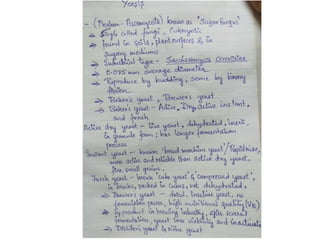 Yeasts
- (Phylum - Ascomycota) known as "Sugar fungus"
→ Single celled fungi. Eukaryotic
→ found in soils, plant surfaces & in
sugary mediums
→ Industrial type - Saccharomyces Cerevisiae
→ 0.075 mm average diameter
→ Reproduce by budding, some by binary
fission.
→ Baker's yeast, Brewers yeast
→ Baker's yeast - Active, Dry, active instant,
and fresh
Active dry yeast - live yeast, dehydrated, inert,
in granule form; has longer fermentation
process
Instant yeast - known 'bread machine yeast'/ Rapidrise,
more active and reliable than active dry yeast,
fine, small grains.
Fresh yeast - known "cake yeast & compressed yeast",
in blocks, packed in cubes, not dehydrated,
→ Brewers yeast - dried, inactive yeast, no
fermentation power, high nutritional quality (VB)
→ by product in brewing industry, after several
fermentation, yeast lose viability and inactivate
→ Distillers yeast & wine yeast